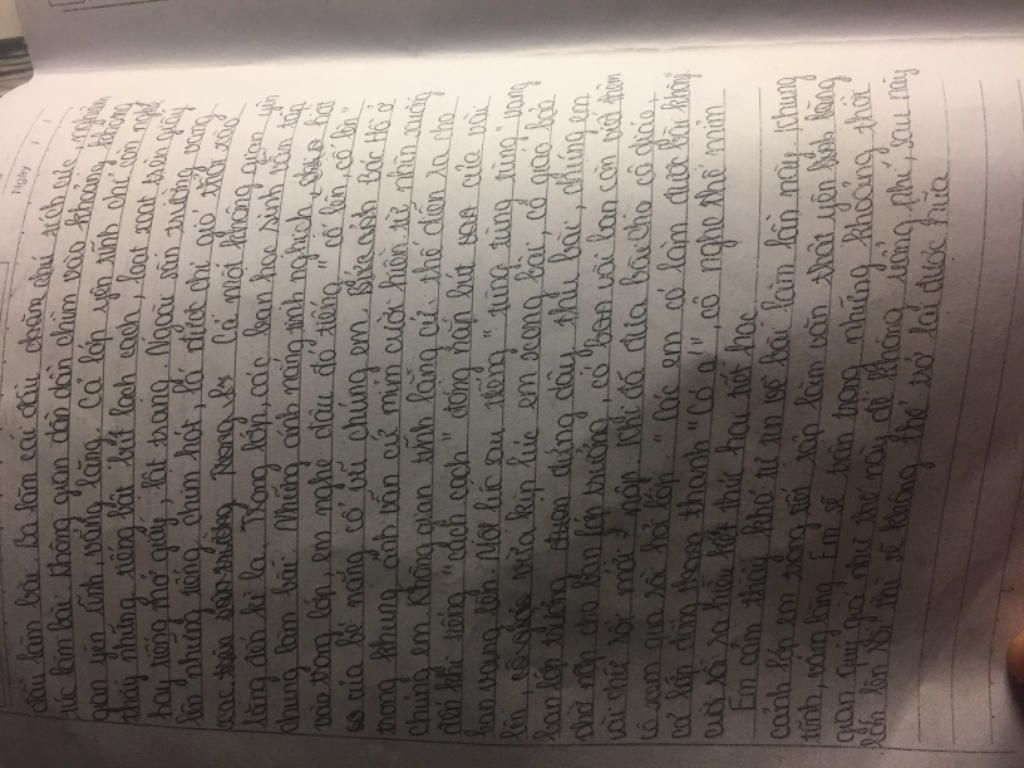 Ngày
đầu làm bài. Ba lăm cái đầu chăm chú tích cực, nghiêm
túc làm bài. Không gian dần dần chìm vào khoảng không
gian yên tĩnh, vắng lặng. Cả lớp yên tĩnh chỉ còn nghe
thấy những tiếng bút lạch cạch, loạt xoạt trên giấy
hay tiếng mở giấy, lật trang. Ngoài sân trường vang
lên những tiếng chim hót, lá chỉ gió thổi xào
xạc trên sân trường. Cả một không gian
lặng đến kì lạ. Trong lớp, các bạn học sinh vẫn tập
chung làm bài. Những ánh nắng tinh nghịch
vào trong lớp, em nghe đâu đó tiếng "cố lên, cố lên"
của bé nắng cổ vũ chúng em. Bức ảnh Bác Hồ ở
trong khung ảnh vẫn cứ mỉm cười hiền từ nhìn xuống
chúng em. Không gian tĩnh lặng cứ thế diễn ra cho
đến khi tiếng "lạch cạch" đóng nắp bút của vài
bạn vang lên. Một lúc sau tiếng "tùng tùng tùng" vang
lên, vừa kịp lúc em xong bài, cô giáo bảo
ban lớp trưởng đứng dậy thu bài, chúng em
chờ nộp cho bạn lớp trưởng, có bạn vài bạn còn vội thêm
vài chữ rồi mới nộp. Khi đã đưa bài cho cô giáo,
cô xem qua rồi hỏi lớp "Các em có làm được bài không"
cả lớp đồng thanh "Có ạ!", cô nghe thế mỉm
cười rồi ra hiệu kết thúc hai tiết học.
Em cảm thấy khá tự tin bài làm lần này, khung
cảnh lớp em trong tiết tập làm văn thật yên bình lặng
tĩnh, vắng lặng. Em sẽ trân trọng những khoảng thời
gian quý giá như thế này để không uổng phí, sau này
lớn lên rồi thì sẽ không thể trở lại được nữa